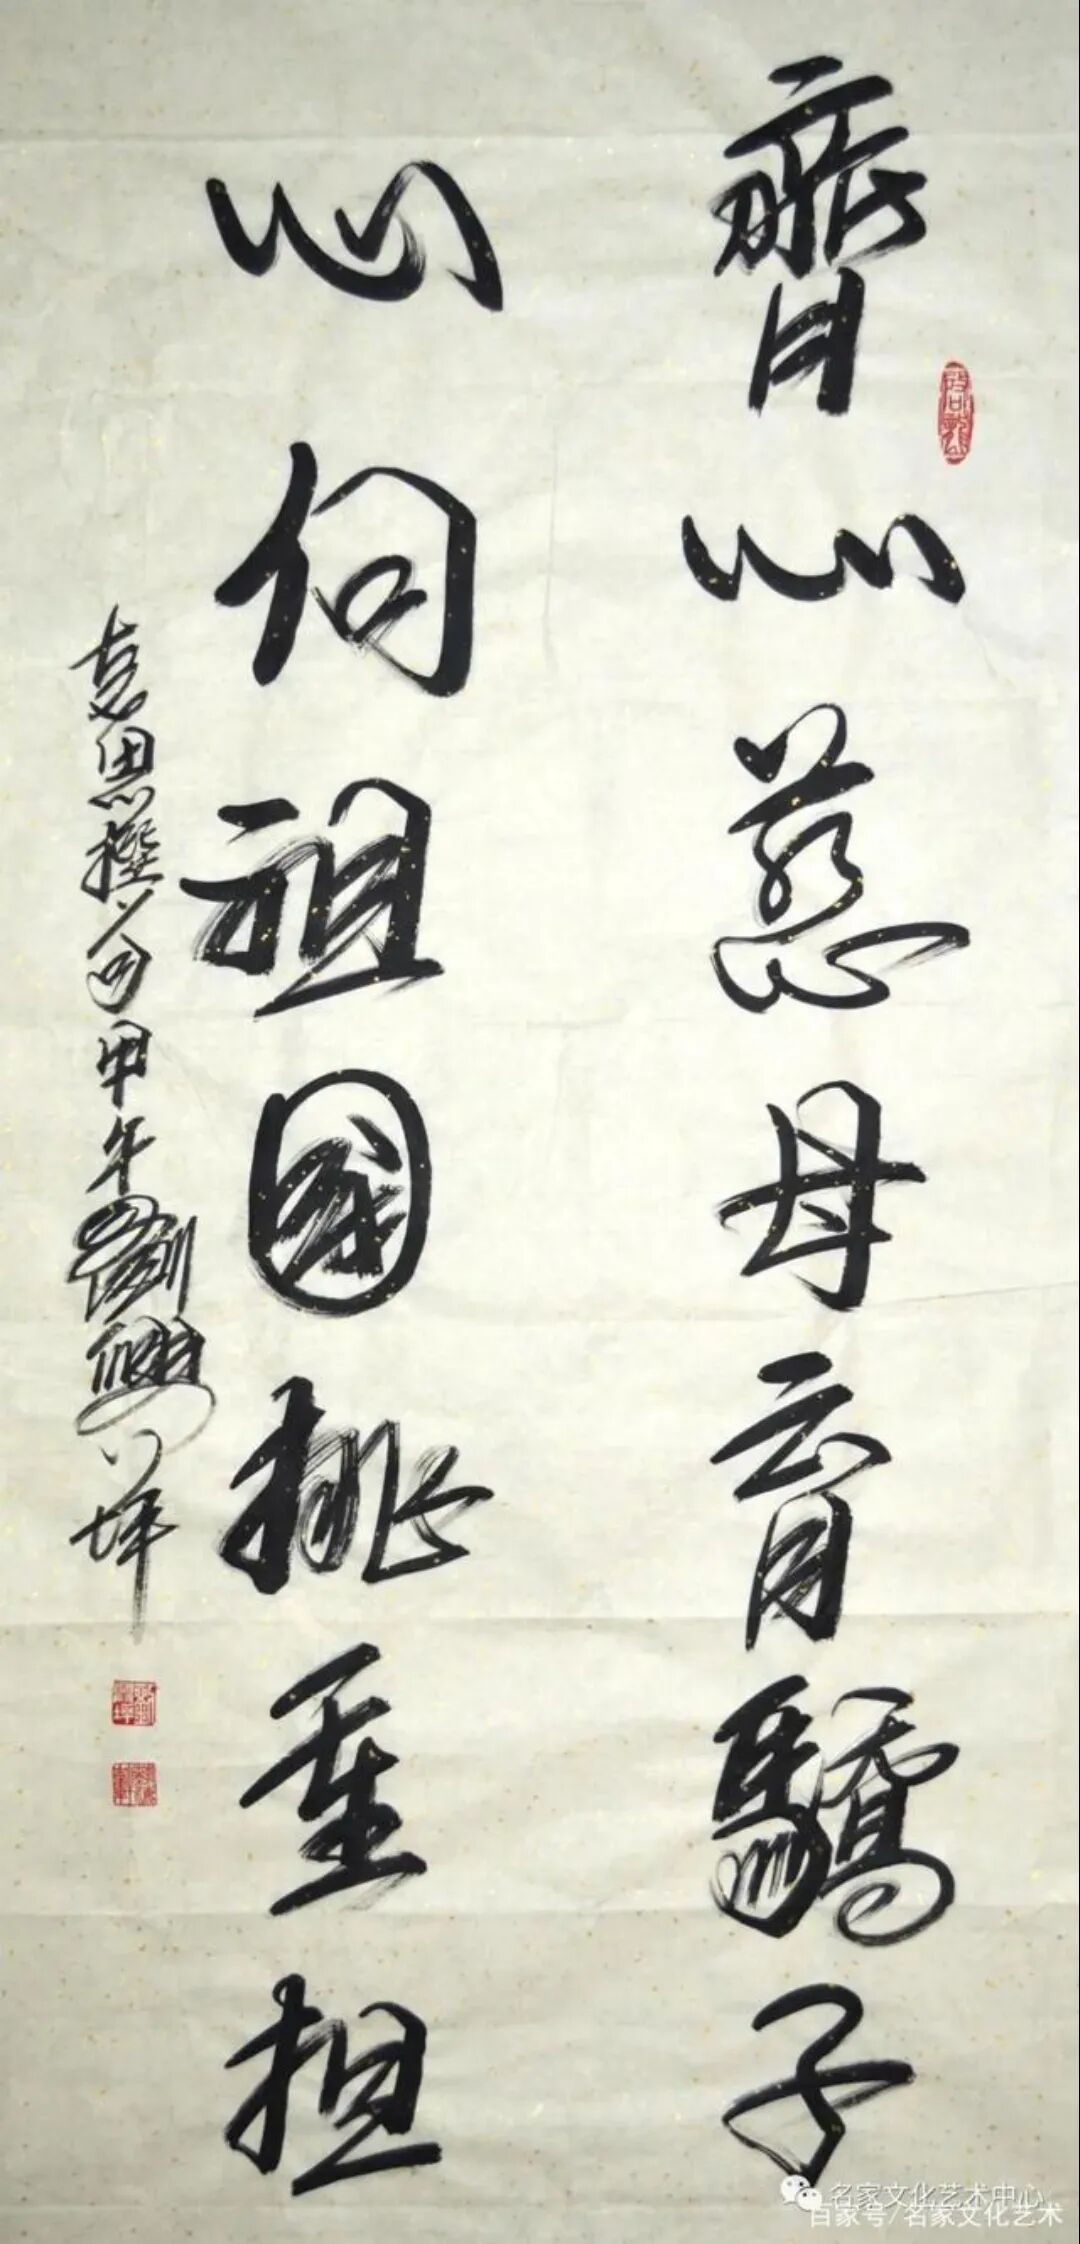 齊心慈母育驕子
心向祖國挑重担
袁思撰句甲午劉興坪
名家文化艺术中心
百家号/名家文化艺术